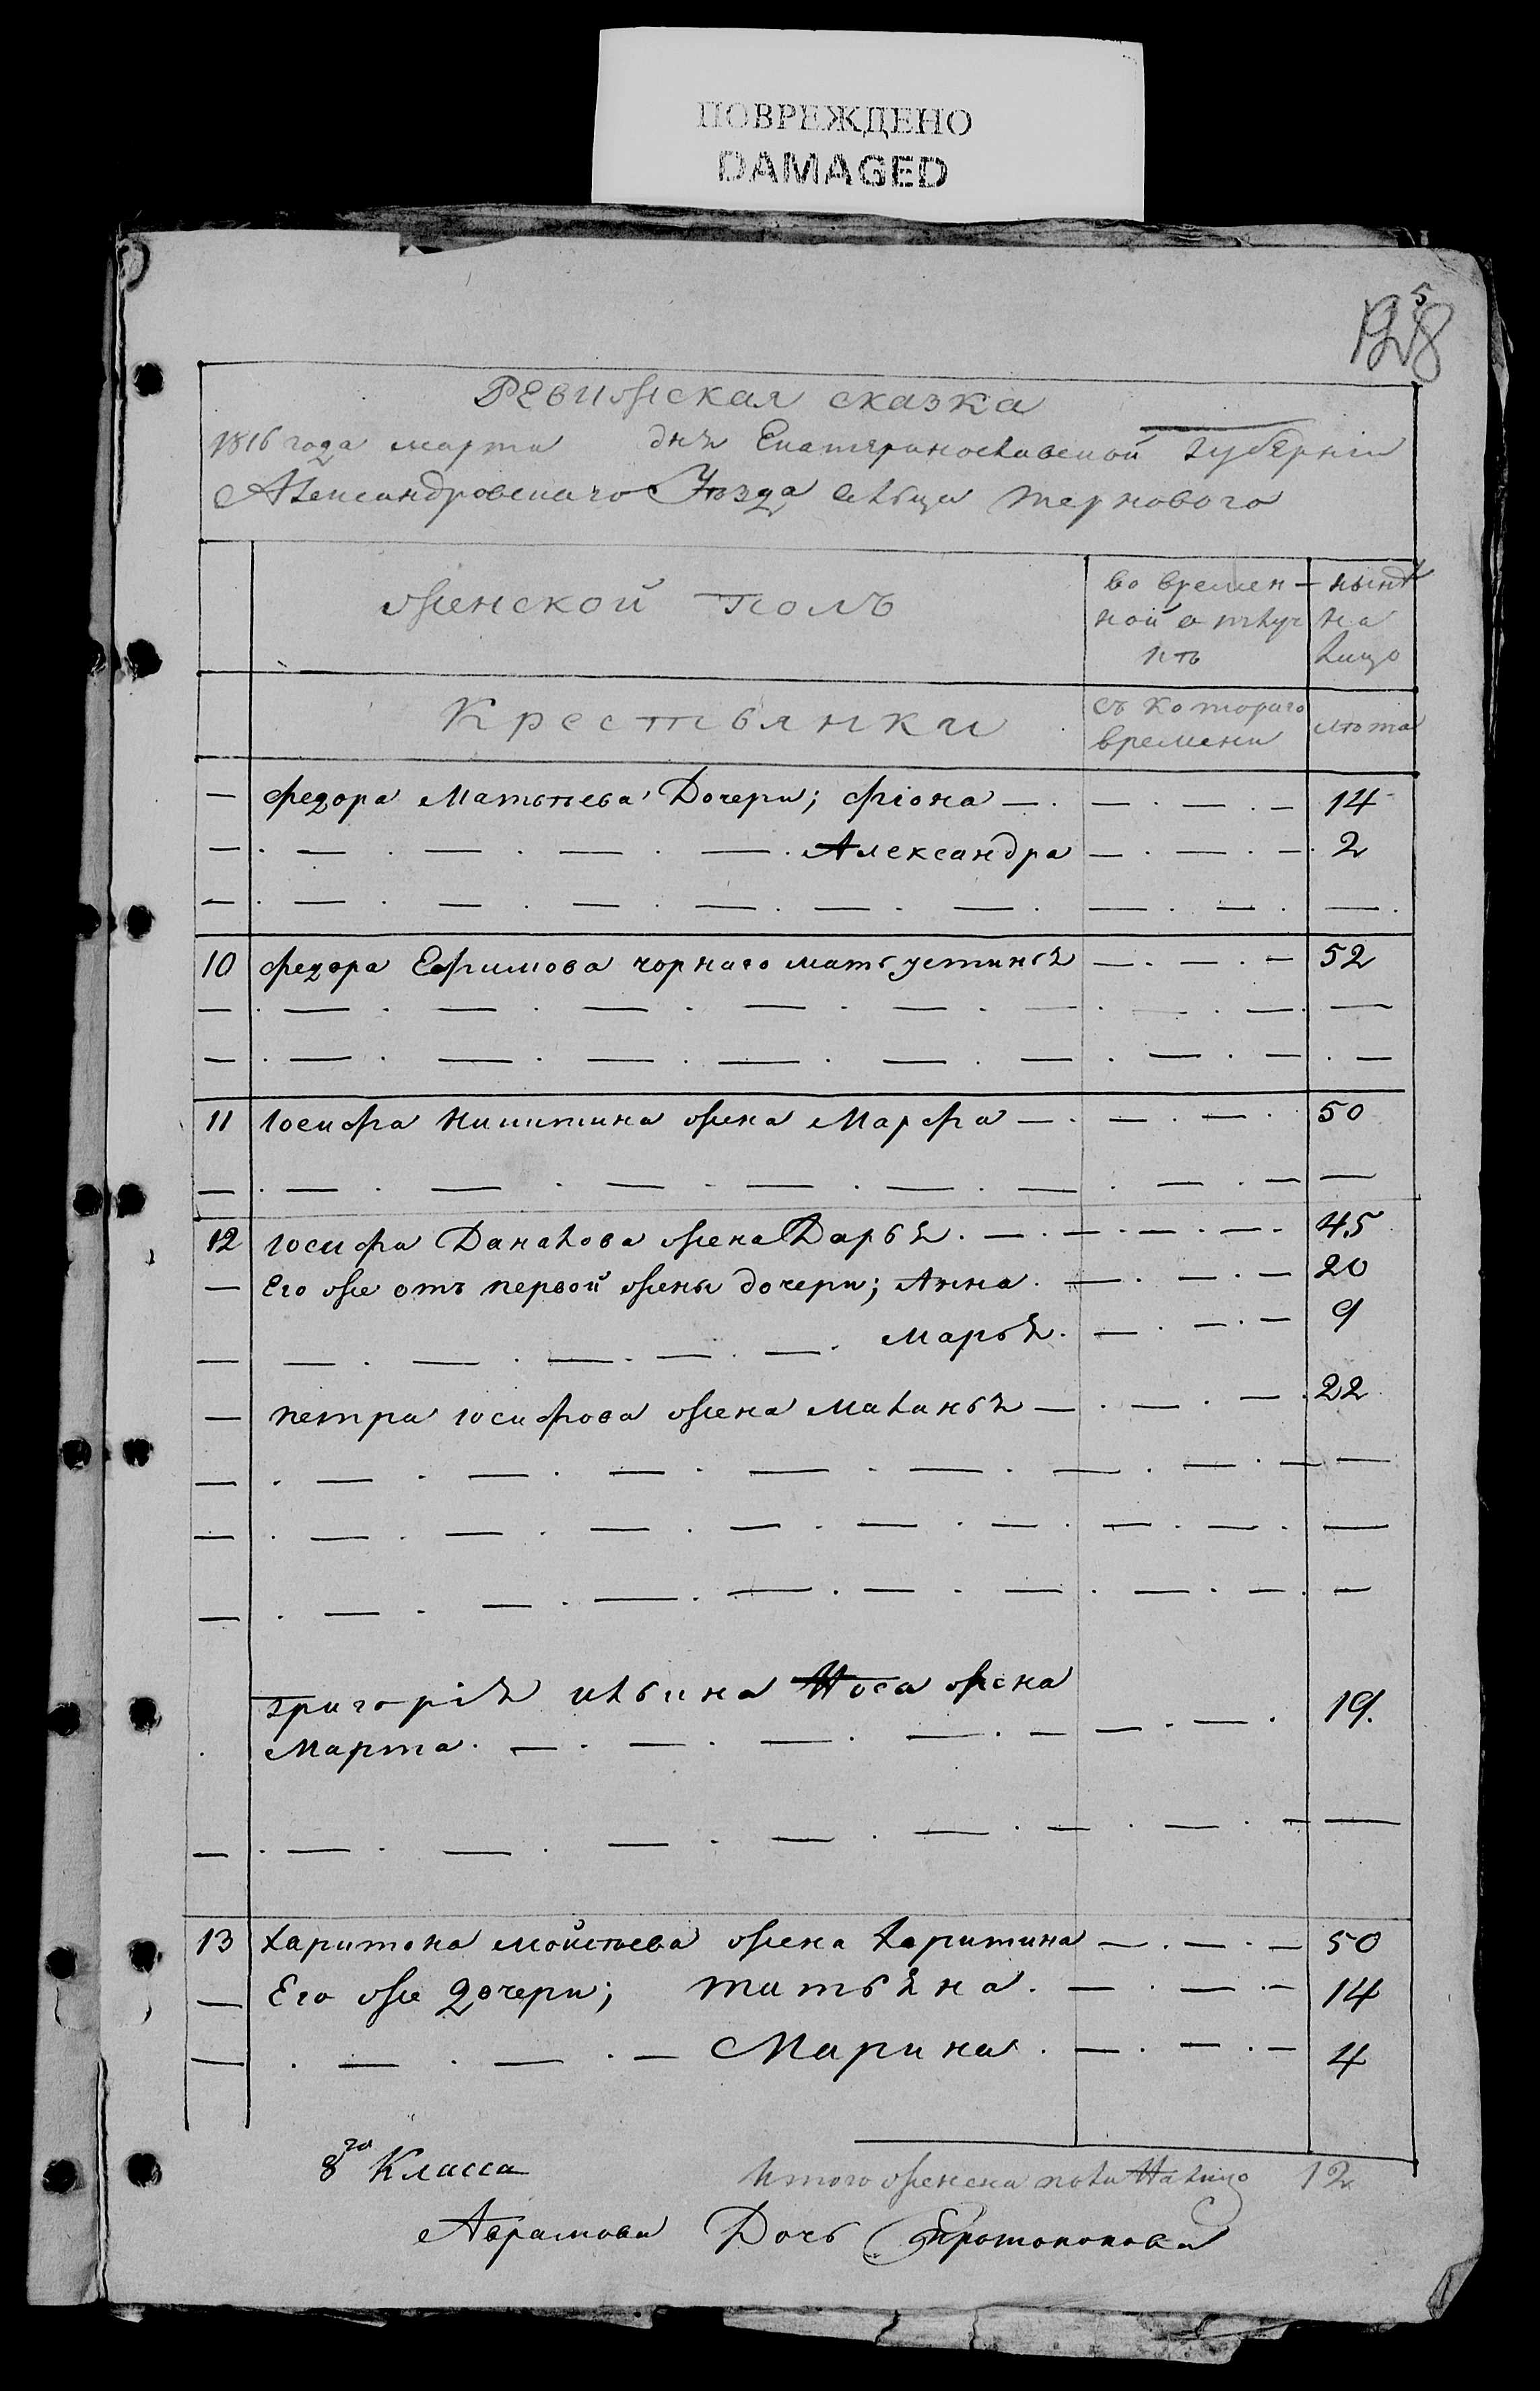 ПОВРЕЖДЕНО
DAMAGED
5
Ревижская сказка
1816 года марта дня Екатеринославской губерніи
Александровскаго Уѣзда сельца тернового
женской полъ
во времен-
ной отлуч
кѣ
нынѣ
на
лицо
Крестьянки
съ котораго
времени
лѣта
— федора Матвѣева Дочери; фіона — . — . — . — 14
— . — . — . — . — . Александра — . — . — . 2
10 федора Ефимова чорнаго мать устинья — . — . — 52
11 Іосифа Никитина жена Марфа — . — . — . 50
12 Іосифа Данилова жена Дарья . — . — . — . — . 45
— Его же отъ первой жены дочери; Анна . — . — . — 20
— — . — . — . — . — . Марья . — . — . — 9
— петра Іосифова жена Маланья — . — . — . 22
григорія ильина Носа жена
Марта . — . — . — . — . — — . — . 19.
13 харитона мойсѣева жена харитина — . — . — 50
— Его же дочери; татьяна . — . — . — 14
— . — . — . — Марина . — . — . — 4
Итого женска пола На лицо 12
8го Класса
Аврамова Дочь Протопопова